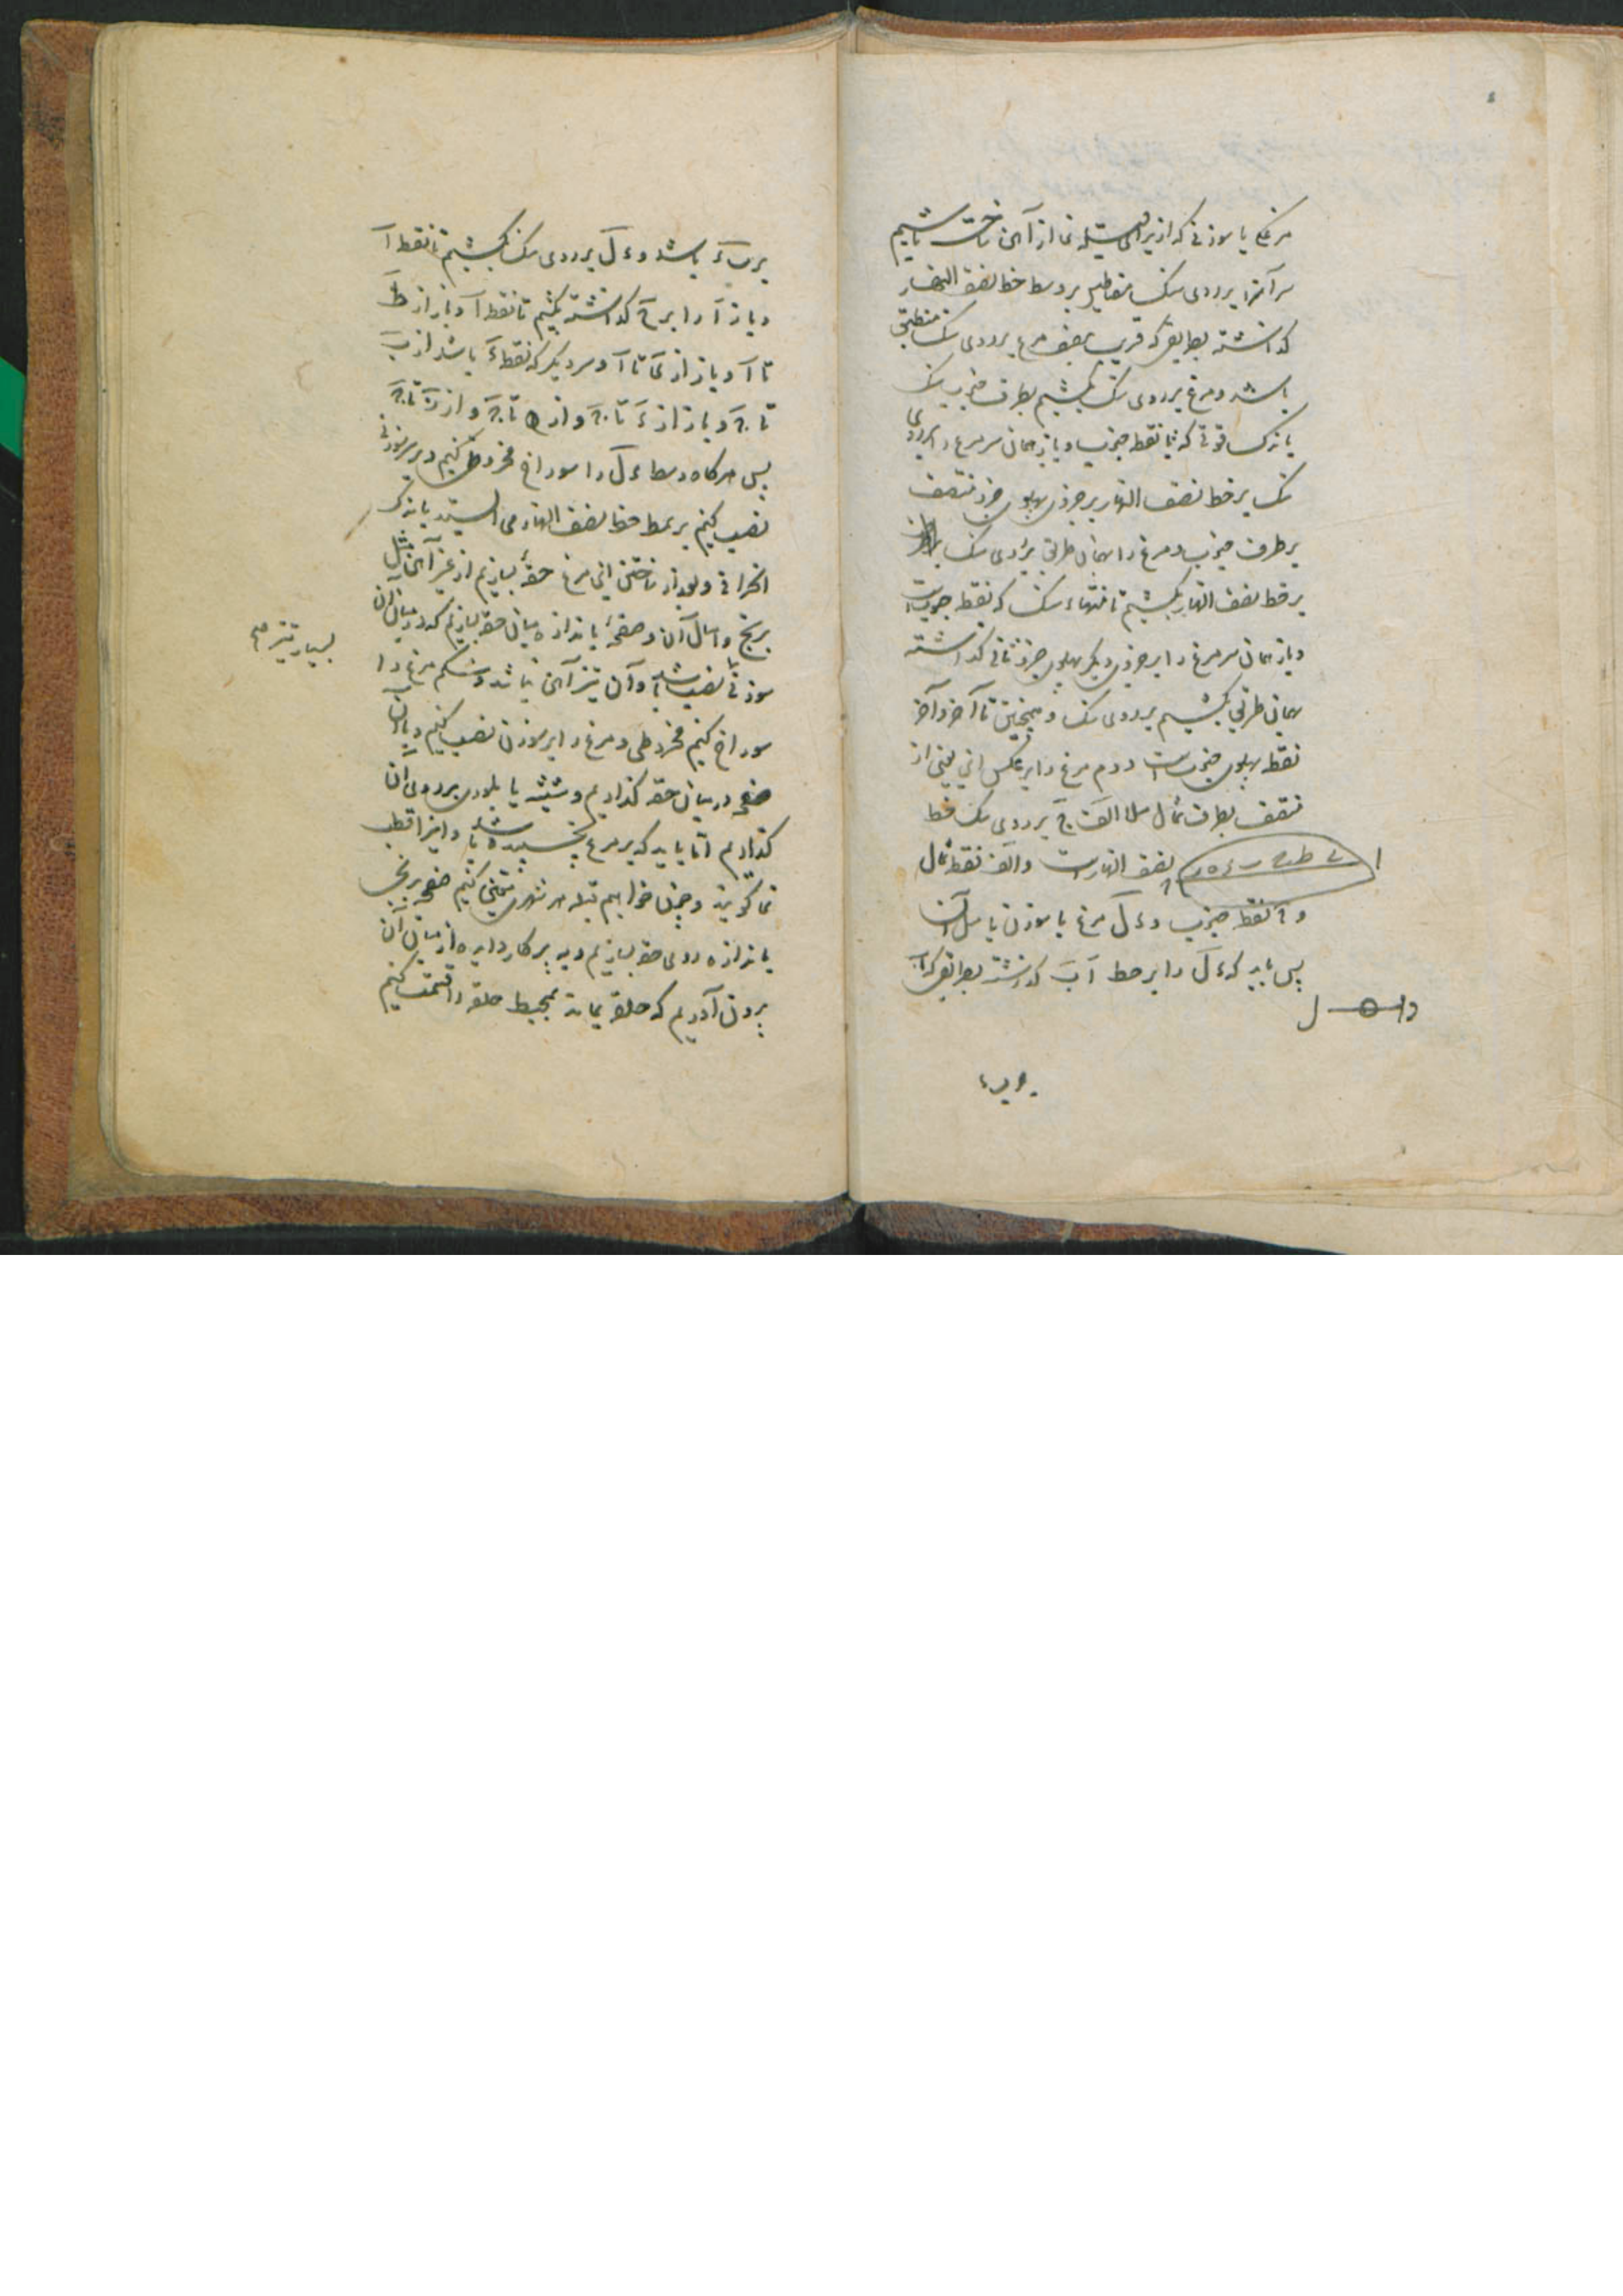 مرغی یا سوزنی که از برای قبله نما از آهن ساخته باشیم
سر آنرا بر روی سنک مقناطیس بر وسط خط نصف النهار
کذاشته بطریقی که قریب بنصف مرغ بر روی سنک منطبق
باشد و مرغ بر روی سنک بکشیم بطرف جنوب سنک
باندک قوتی که تا نقطه جنوب و باز همان سر مرغ را بر روی
سنک بر خط نصف النهار بر جزوی پهلوی جزو منتصف
بر طرف جنوب و مرغ را بهمان طریق بر روی سنک
بر خط نصف النهار بکشیم تا منتهاء سنک که نقطه جنوبست
و باز همان سر مرغ را بر جزوی دیکر پهلوی جزو ثانی کذاشته
بهمان طریق بکشیم بر روی سنک و همچنین تا آخر و آخر
نقطه پهلوی جنوبست و دم مرغ را بر عکس این یعنی از
منتصف بطرف شمال مثلا الف ج بر روی سنک خط
نصف النهارست و الف نقطه شمال
و ج نقطه جنوب و ء ل مرغ یا سوزن یا مثل آن
پس باید که ء ل را بر خط آ ب کذاشته بطریقی که آ
ل
بر ب ء باشد و ء ل بر روی سنک بکشیم تا نقطه آ
و باز آ را بر ح کذاشته بکشیم تا نقطه آ و باز از ط
تا آ و باز از ی تا آ و سر دیکر که نقطه ء باشد از ب
تا ج و باز از ء تا ج و از ه تا ج و از ر تا ج
پس هر کاه وسط ء ل را سوراخ مخروطی کنیم و بر سوزنی
نصب کنیم بر خط نصف النهار می ایستد باندک
انحرافی و بعد از ساختن این مرغ حقه بسازیم از غیر آهن مثل
برنج و امثال آن و صفحهٔ باندازه میان حقه بسازیم که در میان آن
سوزنی نصب باشد و آن نیز آهن نباشد و شکم مرغ را
بسیار تیز صح
سوراخ کنیم مخروطی و مرغ را بر سوزن نصب کنیم و بآن
صفحه در میان حقه کذاریم و شیشه یا بلوری بر روی آن
کذاریم اما باید که بر مرغ نچسبیده باشد و اینرا قطب
نما کویند و چون خواهیم قبله هر شهری معین کنیم صفحه برنجی
باندازه روی حقه بسازیم و به پرکار دایره از میان آن
بیرون آوریم که حلقه بماند محیط حلقه را قسمت کنیم